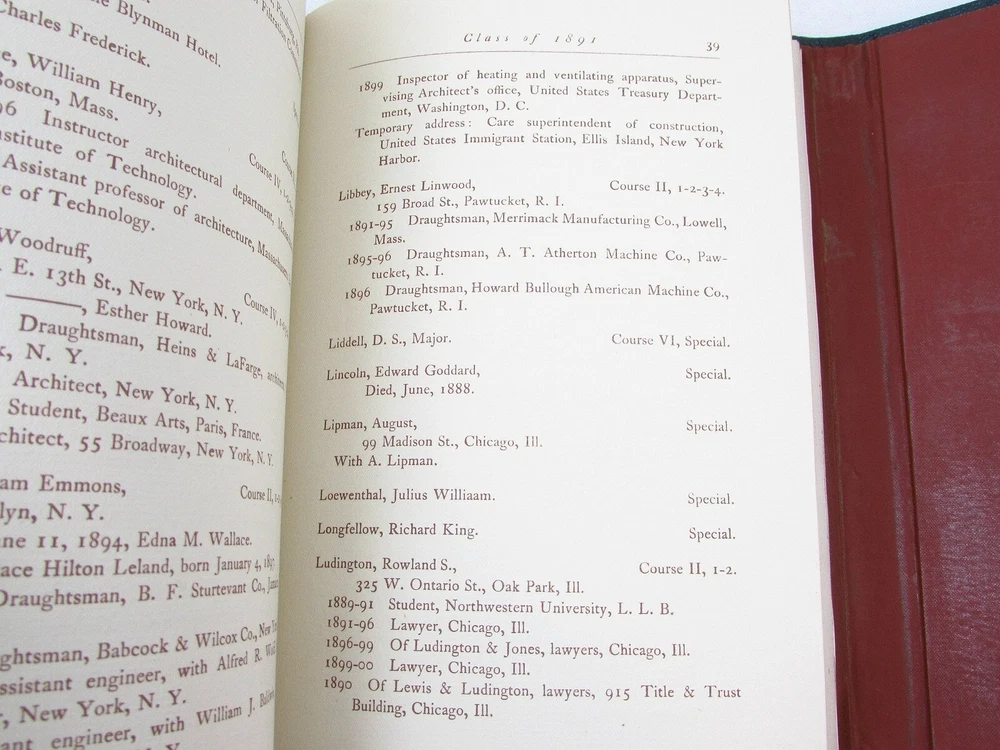 Blynman Hotel.
Charles Frederick.
William Henry,
Boston, Mass.
96 Instructor architectural department,
Institute of Technology.
Assistant professor of architecture,
of Technology.
Course IV,
Woodruff,
E. 13th St., New York, N. Y.
Course IV,
, Esther Howard.
Draughtsman, Heins & LaFarge,
N. Y.
Architect, New York, N. Y.
Student, Beaux Arts, Paris, France.
55 Broadway, New York, N. Y.
Emmons,
Course II,
N. Y.
11, 1894, Edna M. Wallace.
Hilton Leland, born January 4, 1897
Draughtsman, B. F. Sturtevant Co.,
Babcock & Wilcox Co.,
assistant engineer, with Alfred R.
New York, N. Y.
engineer, with William J.
Class of 1891
39
1899 Inspector of heating and ventilating apparatus, Super-
vising Architect's office, United States Treasury Depart-
ment, Washington, D. C.
Temporary address: Care superintendent of construction,
United States Immigrant Station, Ellis Island, New York
Harbor.
Libbey, Ernest Linwood, Course II, 1-2-3-4.
159 Broad St., Pawtucket, R. I.
1891-95 Draughtsman, Merrimack Manufacturing Co., Lowell,
Mass.
1895-96 Draughtsman, A. T. Atherton Machine Co., Paw-
tucket, R. I.
1896 Draughtsman, Howard Bullough American Machine Co.,
Pawtucket, R. I.
Liddell, D. S., Major. Course VI, Special.
Lincoln, Edward Goddard, Special.
Died, June, 1888.
Lipman, August, Special.
99 Madison St., Chicago, Ill.
With A. Lipman.
Loewenthal, Julius Williaam. Special.
Longfellow, Richard King. Special.
Ludington, Rowland S., Course II, 1-2.
325 W. Ontario St., Oak Park, Ill.
1889-91 Student, Northwestern University, L. L. B.
1891-96 Lawyer, Chicago, Ill.
1896-99 Of Ludington & Jones, lawyers, Chicago, Ill.
1899-00 Lawyer, Chicago, Ill.
1890 Of Lewis & Ludington, lawyers, 915 Title & Trust
Building, Chicago, Ill.